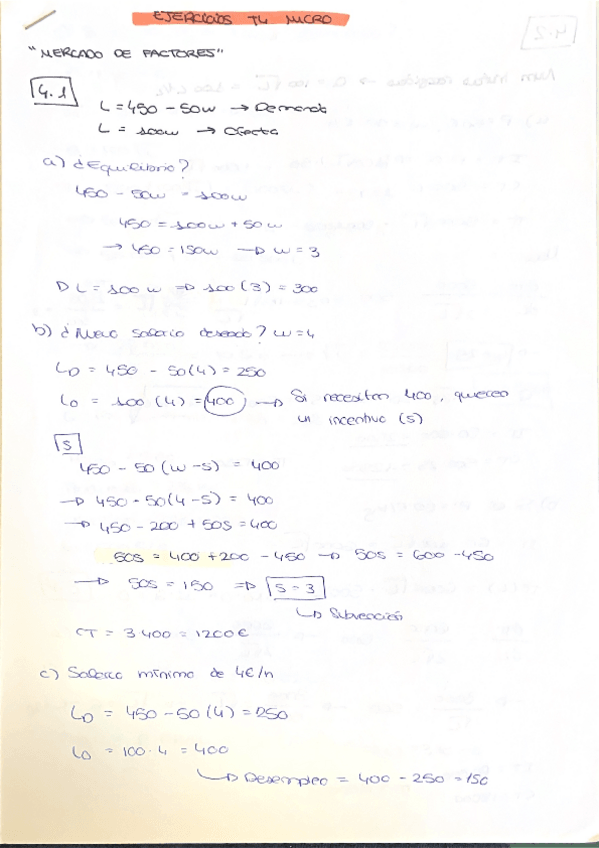 EJERCICIOS T4 MICRO
"MERCADO DE FACTORES"
4.1
L = 450 - 50w → Demanda
L = 100w → Oferta
a) ¿Equilibrio?
450 - 50w = 100w
450 = 100w + 50w
→ 450 = 150w → w = 3
D L = 100w ⇒ 100(3) = 300
b) ¿Nuevo salario deseado? w = 4
LD = 450 - 50(4) = 250
LO = 100(4) = 400 → Si necesitan 400, quieren
un incentivo (s)
S
450 - 50(w - s) = 400
→ 450 - 50(4 - s) = 400
→ 450 - 200 + 50s = 400
50s = 400 + 200 - 450 → 50s = 600 - 450
→ 50s = 150 ⇒ s = 3
↳ Subvención
CT = 3·400 = 1200€
c) Salario mínimo de 4€/h
LD = 450 - 50(4) = 250
LO = 100·4 = 400
↳ Desempleo = 400 - 250 = 150